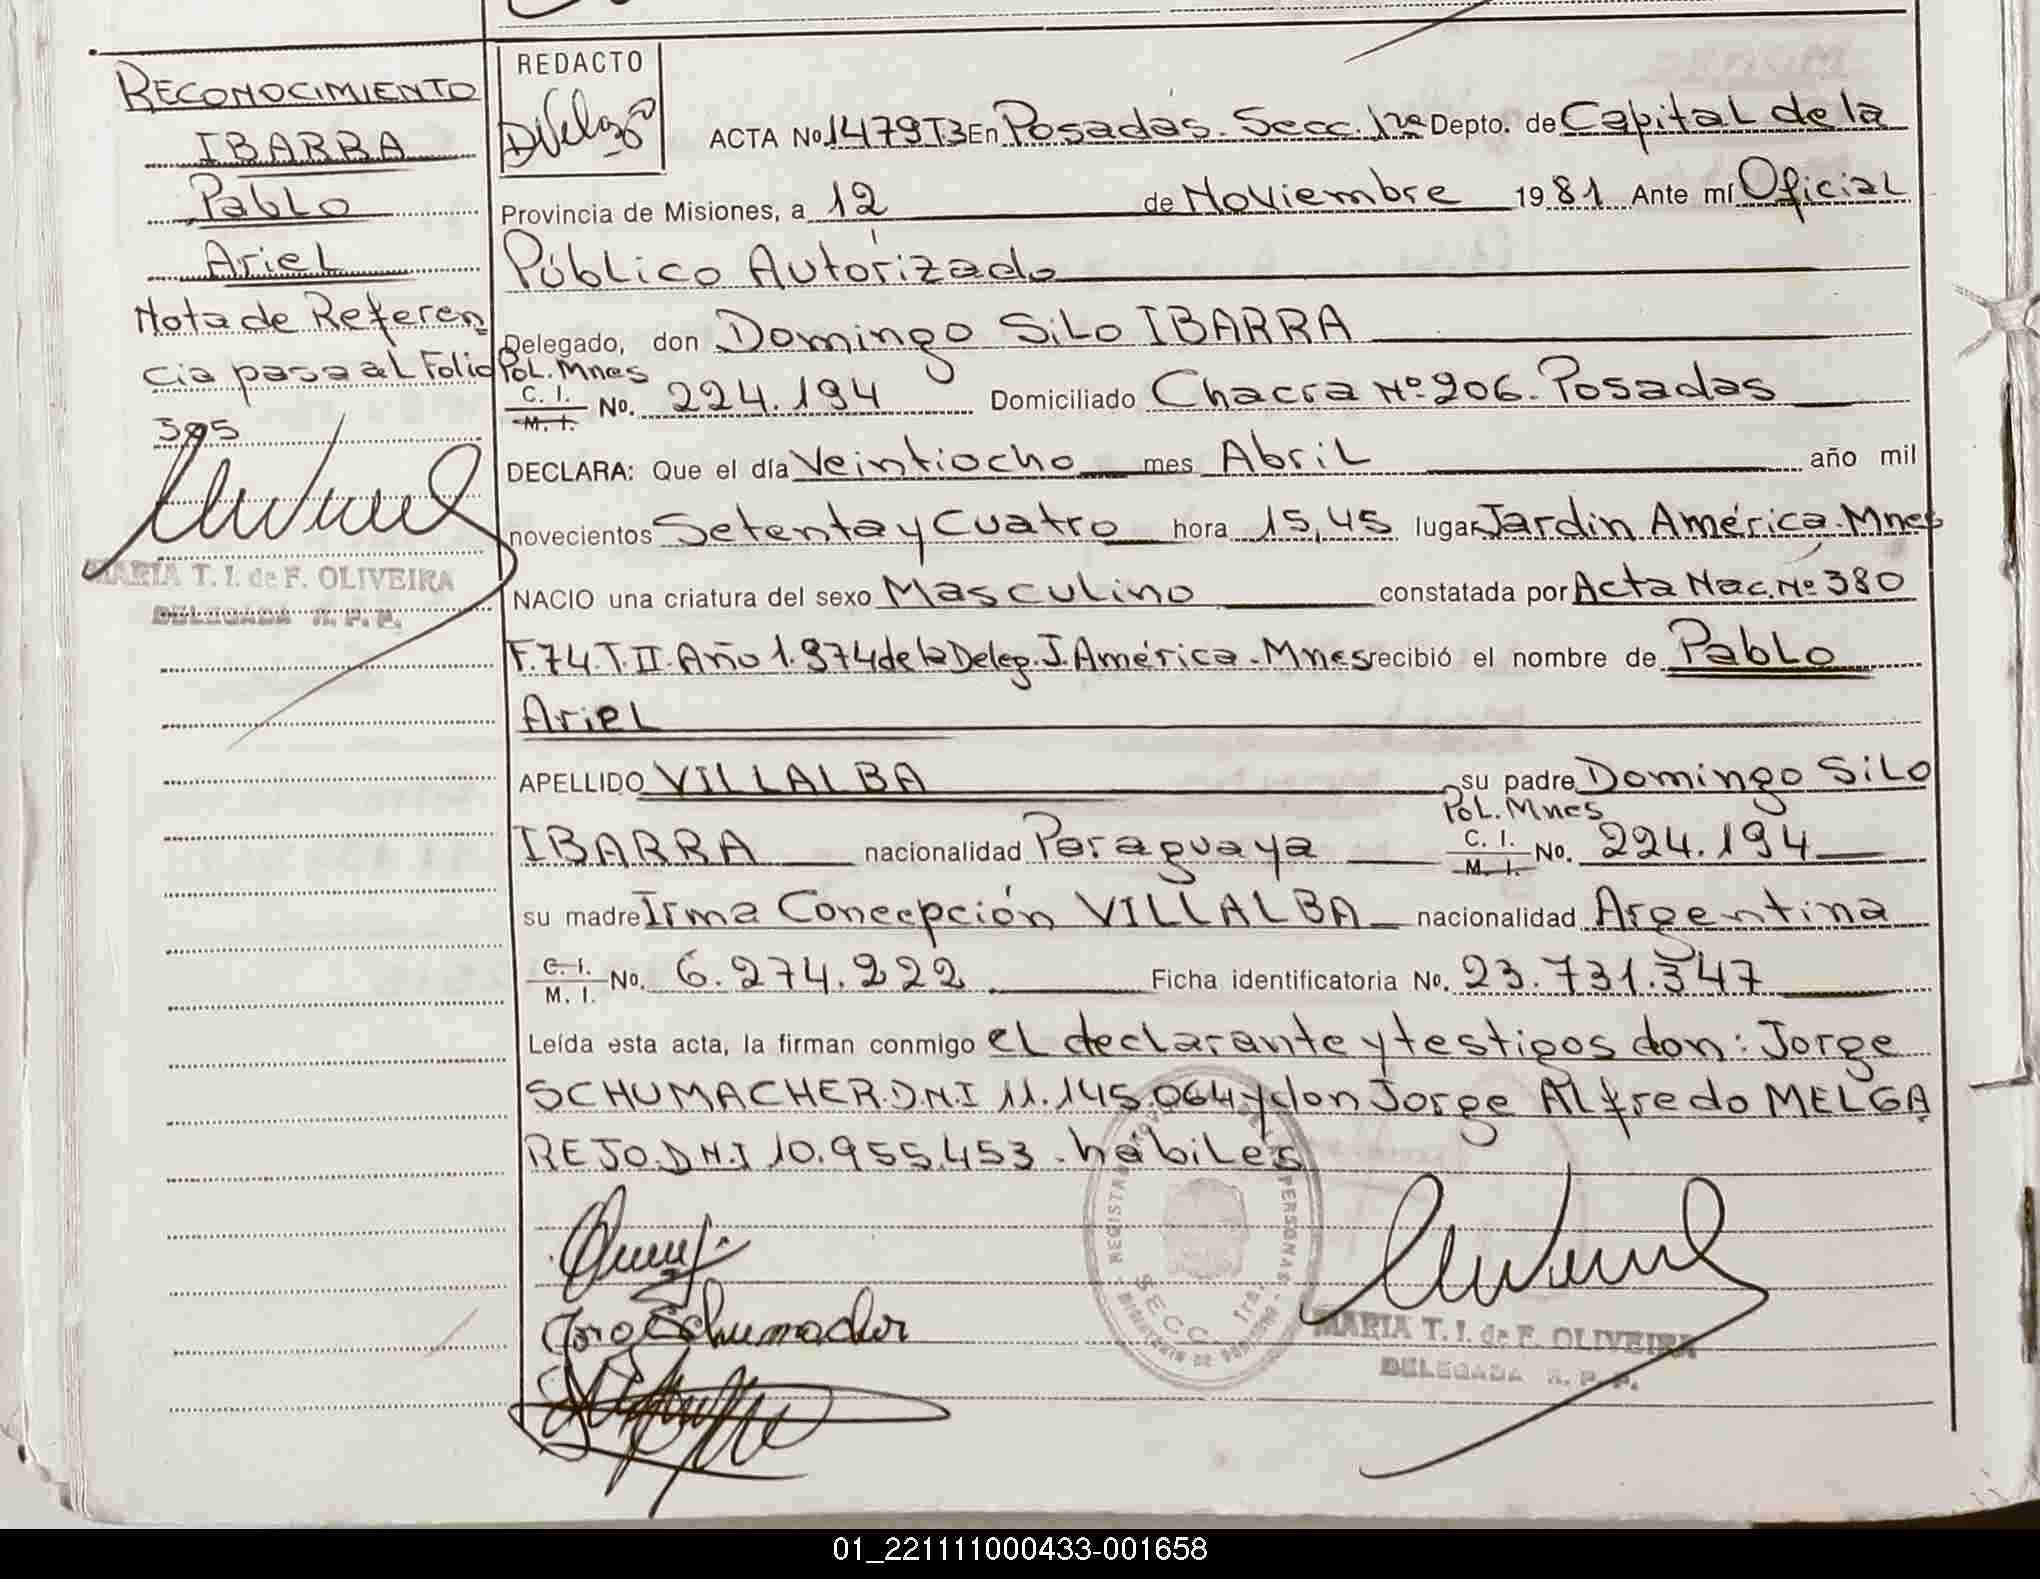 RECONOCIMIENTO
IBARRA
Pablo
Ariel
Nota de Referen
cia pasa al Folio
395
MARIA T. I. de F. OLIVEIRA
DELEGADA R. P. P.
REDACTO
ACTA No 1479 T3 En Posadas. Secc. 1ra Depto. de Capital de la
Provincia de Misiones, a 12 de Noviembre 1981 Ante mí Oficial
Público Autorizado
Delegado, don Domingo Silo IBARRA
Pol. Mnes
C. I. M. I. No. 224.194 Domiciliado Chacra Nº 206. Posadas
DECLARA: Que el día Veintiocho mes Abril año mil
novecientos Setenta y Cuatro hora 15,45 lugar Jardin América. Mnes
NACIO una criatura del sexo Masculino constatada por Acta Nac. Nº 380
F. 74. T. II. Año 1.974 de la Deleg. J. América. Mnes recibió el nombre de Pablo
Ariel
APELLIDO VILLALBA su padre Domingo Silo
Pol. Mnes
IBARRA nacionalidad Paraguaya C. I. M. I. No. 224.194
su madre Irma Concepción VILLALBA nacionalidad Argentina
C. I. M. I. No. 6.274.222 Ficha identificatoria No. 23.731.347
Leída esta acta, la firman conmigo el declarante y testigos don: Jorge
SCHUMACHER. D.N.I 11.145.064 y don Jorge Alfredo MELGA
REJO. D.N.I 10.955.453 - habiles
Jorge Schumacher
SECC. 1ra.
MARIA T. I. de F. OLIVEIRA
DELEGADA R. P. P.
01_221111000433-001658